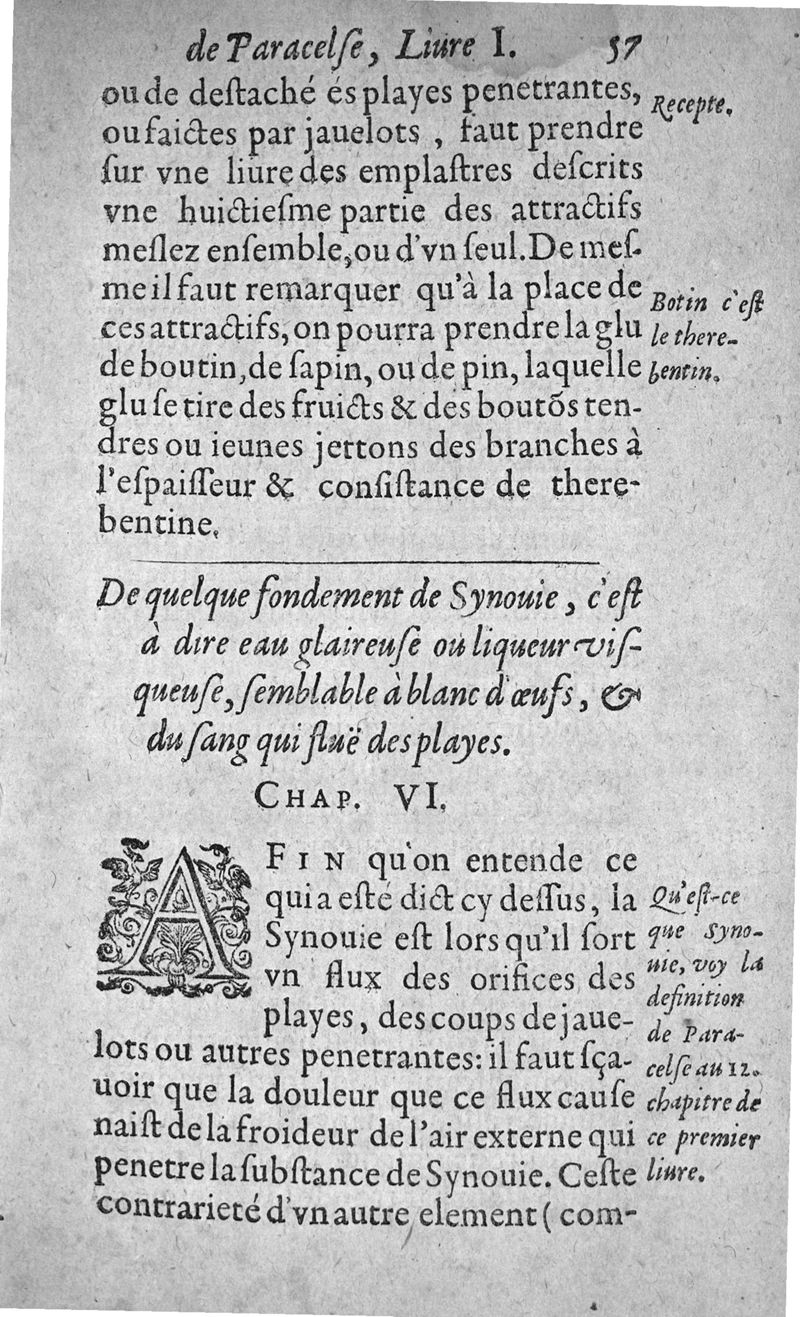 de Paracelſe, Liure I. 57
ou de deſtaché és playes penetrantes,
ou faictes par jauelots, faut prendre
ſur vne liure des emplaſtres deſcrits
vne huictieſme partie des attractifs
meſlez enſemble, ou d'vn ſeul. De meſ-
me il faut remarquer qu'à la place de
ces attractifs, on pourra prendre la glu
de boutin, de ſapin, ou de pin, laquelle
glu ſe tire des fruicts & des boutõs ten-
dres ou ieunes jettons des branches à
l'eſpaiſſeur & conſiſtance de there-
bentine.
Recepte.
Botin c'eſt
le there-
bentin.
De quelque fondement de Synouie, c'eſt
à dire eau glaireuſe ou liqueur viſ-
queuſe, ſemblable à blanc d'œufs, &
du ſang qui fluë des playes.
CHAP. VI.
AFIN qu'on entende ce
qui a eſté dict cy deſſus, la
Synouie eſt lors qu'il ſort
vn flux des orifices des
playes, des coups de jaue-
lots ou autres penetrantes: il faut ſça-
uoir que la douleur que ce flux cauſe
naiſt de la froideur de l'air externe qui
penetre la ſubſtance de Synouie. Ceſte
contrarieté d'vn autre element (com-
Qu'eſt-ce
que Syno-
uie, voy la
definition
de Para-
celſe au 12.
chapitre de
ce premier
liure.